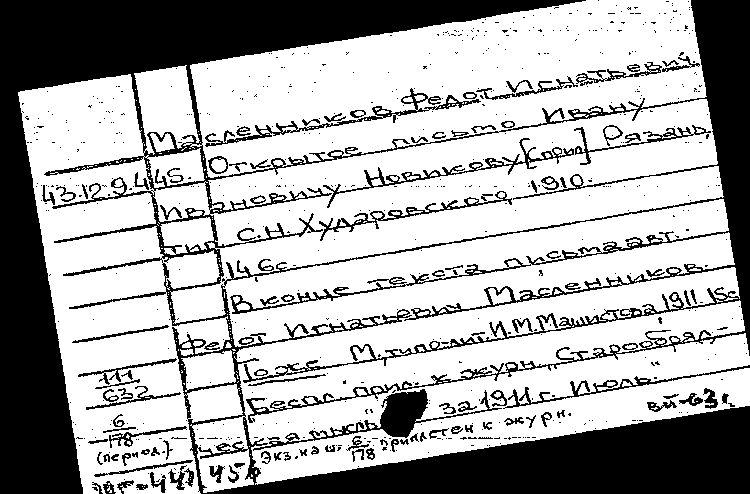 Масленников, Федот Игнатьевич.
43.12.9.4.45. Открытое письмо Ивану
Ивановичу Новикову [с прил] Рязань,
тип. С.Н. Хударовского, 1910.
14,6с.
В конце текста письма авт.:
Федот Игнатьевич Масленников.
То же М, типо-лит. И.М. Машистова, 1911. 15с
111
632
Беспл. прил. к журн. "Старообряд-
6
178
(период.)
ческая мысль" за 1911 г. Июль."
Экз. на ш. 6/178 приплетен к журн.
вй-63г.